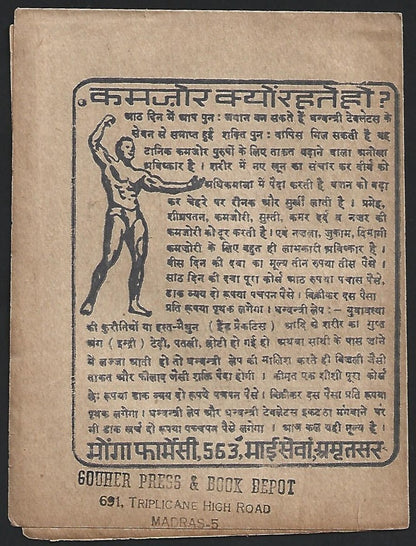 कमज़ोर क्यों रहते हो ?
आठ दिन में आप पुनः जवान बन सकते हैं धन्वन्त्री टेबलेटस के
सेवन से समाप्त हुई शक्ति पुनः वापिस मिल सकती है यह
टानिक कमजोर पुरुषों के लिए ताकत बढ़ाने वाला अनोखा
अविष्कार है । शरीर में नए खून का संचार कर वीर्य को
अधिकमात्रा में पैदा करती है वजन को बढ़ा
कर चेहरे पर रौनक और सुर्खी लाती है । प्रमेह,
शीघ्रपतन, कमजोरी, सुस्ती, कमर दर्द व नजर की
कमजोरी को दूर करती है । एवं नजला, जुकाम, दिमागी
कमजोरी के लिए बहुत ही लाभकारी अविष्कार है ।
बीस दिन की दवा का मूल्य तीन रुपया तीस पैसे ।
साठ दिन की दवा पूरा कोर्स आठ रुपया पचास पैसे,
डाक व्यय दो रूपया पचपन पैसे । बिक्रीकर दस पैसा
प्रति रूपया पृथक लगेगा । धन्वन्त्री लेप :- युवावस्था
की कुरीतियों या हस्त-मैथुन ( हैंड प्रैकटिस ) आदि से शरीर का गुप्त
अंग ( इन्द्री ) टेढ़ी, पतली, छोटी हो गई हो अथवा साथी के पास जाने
में लज्जा आती हो तो धन्वन्त्री लेप की मालिश करते ही बिजली जैसी
ताकत और फौलाद जैसी शक्ति पैदा होगी । कीमत एक शीशी पूरा कोर्स
छः रूपया डाक व्यय दो रूपये पचपन पैसे । बिक्रीकर दस पैसा प्रति रूपया
पृथक लगेगा । धन्वन्त्री लेप और धन्वन्त्री टेबलेटस इकटठा मंगवाने पर
भी डाक खर्च दो रूपया पचपन पैसे लगेगा । आज कल यही मूल्य है ।
मोंगा फार्मेसी, 563, माई सेवां, अमृतसर
GOUHER PRESS & BOOK DEPOT
691, TRIPLICANE HIGH ROAD
MADRAS-5